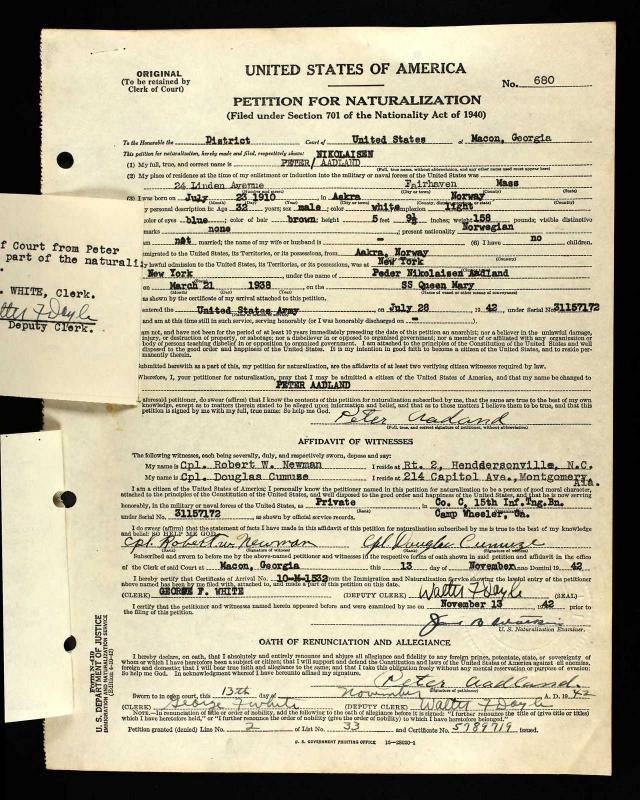 ORIGINAL
(To be retained by
Clerk of Court)
UNITED STATES OF AMERICA
No. 680
PETITION FOR NATURALIZATION
(Filed under Section 701 of the Nationality Act of 1940)
To the Honorable the District Court of United States at Macon, Georgia
This petition for naturalization, hereby made and filed, respectfully shows: NIKOLAISEN
(1) My full, true, and correct name is PETER/ AADLAND
(Full, true name, without abbreviation, and any other name which has been used, must appear here)
(2) My place of residence at the time of my enlistment or induction into the military or naval forces of the United States was
24 Linden Avenue Fairhaven Mass
(3) I was born on July 23 1910 in Aakra Norway
personal description is: Age 32 years; sex male; color white complexion light
color of eyes blue; color of hair brown; height 5 feet 9½ inches; weight 158 pounds; visible distinctive
marks none; present nationality Norwegian
am not married; the name of my wife or husband is - (6) I have no children.
emigrated to the United States, its Territories, or its possessions, from Aakra, Norway
lawful admission to the United States, its Territories, or its possessions, was at New York
New York under the name of Peder Nikolaisen Aadland
on March 21 1938 on the SS Queen Mary
as shown by the certificate of my arrival attached to this petition.
entered the United States Army on July 28 1942 under Serial No. 31157172
and am at this time still in service, serving honorably (or I was honorably discharged on -)
am not, and have not been for the period of at least 10 years immediately preceding the date of this petition an anarchist; nor a believer in the unlawful damage,
injury, or destruction of property, or sabotage; nor a disbeliever in or opposed to organized government; nor a member of or affiliated with any organization or
body of persons teaching disbelief in or opposition to organized government. I am attached to the principles of the Constitution of the United States and well
disposed to the good order and happiness of the United States. It is my intention in good faith to become a citizen of the United States, and to reside per-
manently therein.
Submitted herewith as a part of this, my petition for naturalization, are the affidavits of at least two verifying citizen witnesses required by law.
Wherefore, I, your petitioner for naturalization, pray that I may be admitted a citizen of the United States of America, and that my name be changed to
PETER AADLAND
aforesaid petitioner, do swear (affirm) that I know the contents of this petition for naturalization subscribed by me, that the same are true to the best of my own
knowledge, except as to matters therein stated to be alleged upon information and belief, and that as to those matters I believe them to be true, and that this
petition is signed by me with my full, true name: So help me God.
Peter Aadland
(Full, true, and correct signature of petitioner, without abbreviation)
AFFIDAVIT OF WITNESSES
The following witnesses, each being severally, duly, and respectively sworn, depose and say:
My name is Cpl. Robert W. Newman I reside at Rt. 2, Henddersonville, N.C.
My name is Cpl. Douglas Cumuze I reside at 214 Capitol Ave., Montgomery
Ala.
I am a citizen of the United States of America; I personally know the petitioner named in this petition for naturalization to be a person of good moral character,
attached to the principles of the Constitution of the United States, and well disposed to the good order and happiness of the United States, and that he is now serving
honorably, in the military or naval forces of the United States, as Private Co. C, 15th Inf.Tng.Bn.
under Serial No. 31157172 as shown by official service records. Camp Wheeler, Ga.
I do swear (affirm) that the statement of facts I have made in this affidavit for naturalization subscribed by me is true to the best of my knowledge
and belief: SO HELP ME GOD
Cpl. Robert W. Newman Cpl. Douglas Cumuze
(Signature of witness) (Signature of witness)
Subscribed and sworn to before me by the above-named petitioner and witnesses in the respective forms of oath shown in said petition and affidavit in the office
of the Clerk of said Court at Macon, Georgia this 13 day of November Anno Domini 1942
I hereby certify that Certificate of Arrival No. 10-M-1532 from the Immigration and Naturalization Service showing the lawful entry of the petitioner
above named has been by me filed with, attached to, and made a part of this petition on this date.
(CLERK) GEORGE F. WHITE (DEPUTY CLERK) Walter F Doyle (SEAL)
I certify that the petitioner and witnesses named herein appeared before and were examined by me on November 13 1942 prior to
the filing of this petition.
U. S. Naturalization Examiner.
OATH OF RENUNCIATION AND ALLEGIANCE
I hereby declare, on oath, that I absolutely and entirely renounce and abjure all allegiance and fidelity to any foreign prince, potentate, state, or sovereignty
of whom or which I have heretofore been a subject or citizen; that I will support and defend the Constitution and laws of the United States of America against all enemies,
foreign and domestic; that I will bear true faith and allegiance to the same; and that I take this obligation freely without any mental reservation or purpose of evasion:
So help me God. In acknowledgment whereof I have hereunto affixed my signature.
Peter Aadland
(Signature of petitioner)
Sworn to in open court, this 13th day of November A. D. 1942
(CLERK) George F White (DEPUTY CLERK) Walter F Doyle
NOTE.—In renunciation of title or order of nobility, add the following to the oath before it is signed: "I further renounce the title of (give title or titles)
which I have heretofore held," or "I further renounce the order of nobility (give the order of nobility) to which I have heretofore belonged."
Petition granted (denied) Line No. 2 of List No. 33 and Certificate No. 5789719 issued.
U. S. GOVERNMENT PRINTING OFFICE 16-28020-1
f Court from Peter
part of the naturali
. WHITE, Clerk.
lter F Doyle
Deputy Clerk.
U. S. DEPARTMENT OF JUSTICE
IMMIGRATION AND NATURALIZATION SERVICE